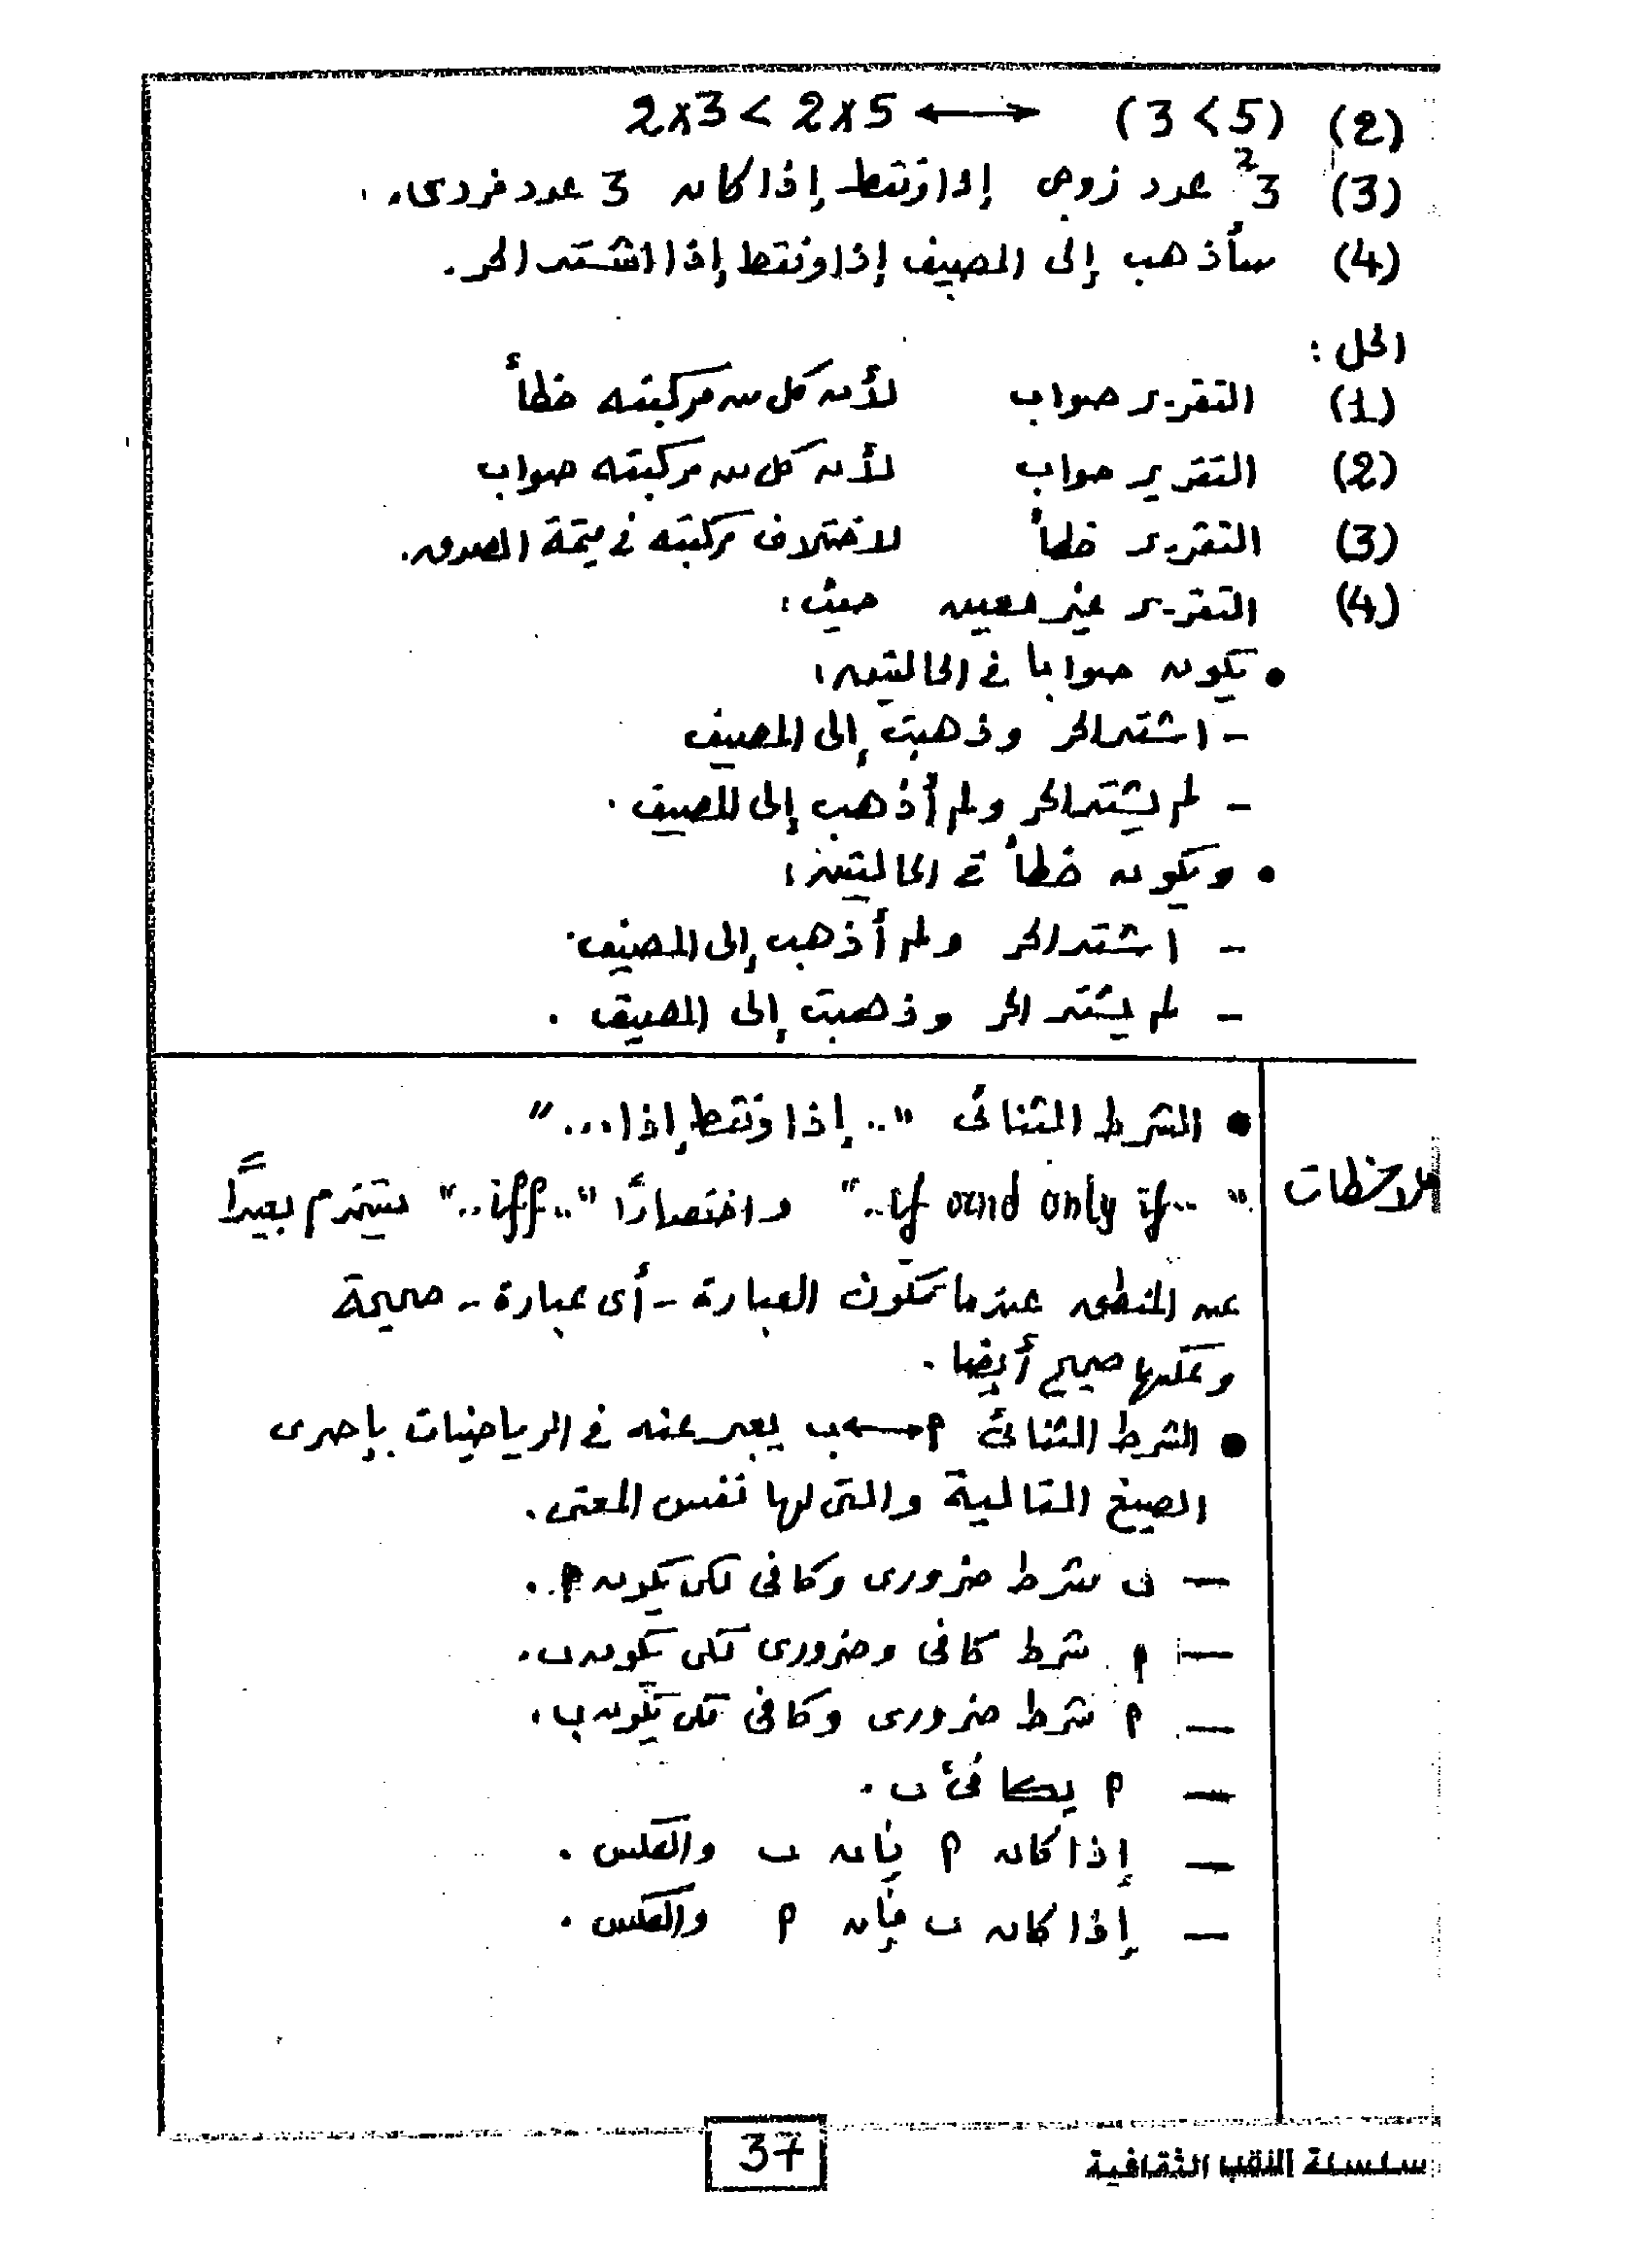 (2) (3 < 5) ⟷ 2x3 < 2x5
(3) 3² عدد زوجى إذا وفقط إذا كان 3 عدد فردى.
(4) سأذهب إلى المصيف إذا وفقط إذا اشتد الحر.
الحل :
(1) التقرير صواب لأن كل من مركبتيه خطأ
(2) التقرير صواب لأن كل من مركبتيه صواب
(3) التقرير خطأ لاختلاف مركبتيه فى قيمة الصدق.
(4) التقرير غير معين حيث :
• يكون صوابا فى الحالتين :
- اشتد الحر وذهبت إلى المصيف
- لم يشتد الحر ولم أذهب إلى المصيف .
• ويكون خطأ فى الحالتين :
- اشتد الحر ولم أذهب إلى المصيف.
- لم يشتد الحر وذهبت إلى المصيف .
ملاحظات
• الشرط الثنائى ".. إذا وفقط إذا ..."
".. If and only if .." واختصارًا "..iff.." يستخدم بعيدًا
عن المنطق عندما تكون العبارة - أى عبارة - صحيحة
وعكسها صحيح أيضا .
• الشرط الثنائى ٩ ⟷ ب يعبر عنه فى الرياضيات بإحدى
الصيغ التالية والتى لها نفس المعنى .
— ب شرط ضرورى وكافى لكى يكون ٩ .
— ٩ شرط كافى وضرورى لكى يكون ب .
— ٩ شرط ضرورى وكافى لكى يكون ب .
— ٩ يكافئ ب .
— إذا كان ٩ فإن ب والعكس .
— إذا كان ب فإن ٩ والعكس .
37
سلسلة النقب الثقافية